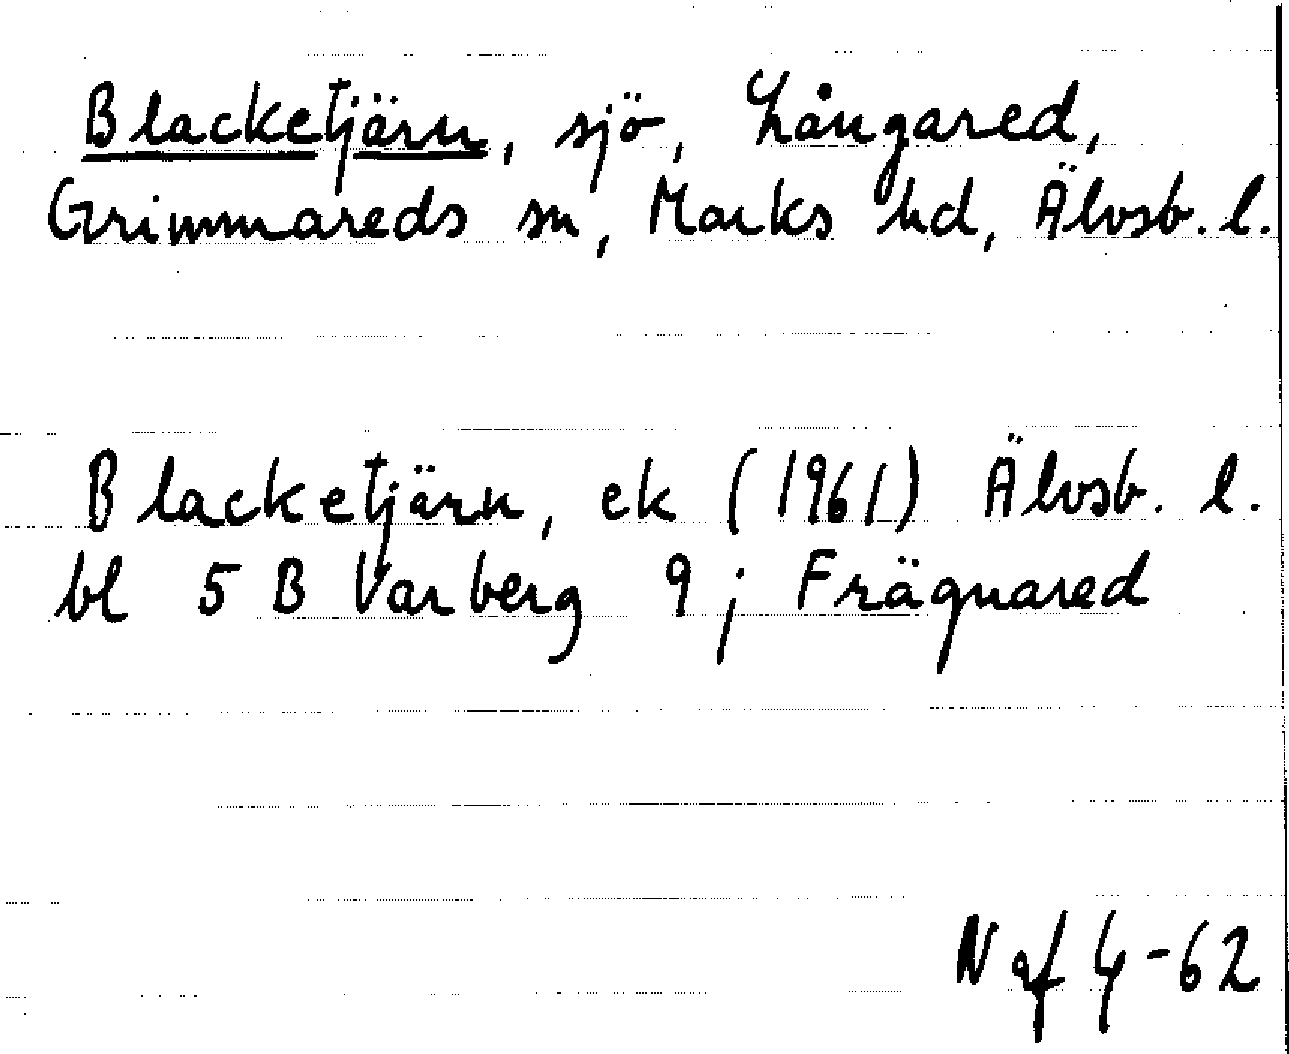 Blacketjärn, sjö, Långared,
Grimmareds sn, Marks hd, Älvsb. l.
Blacketjärn, ek (1961) Älvsb. l.
bl 5 B Varberg 9 j Frägnared
N af 4-62